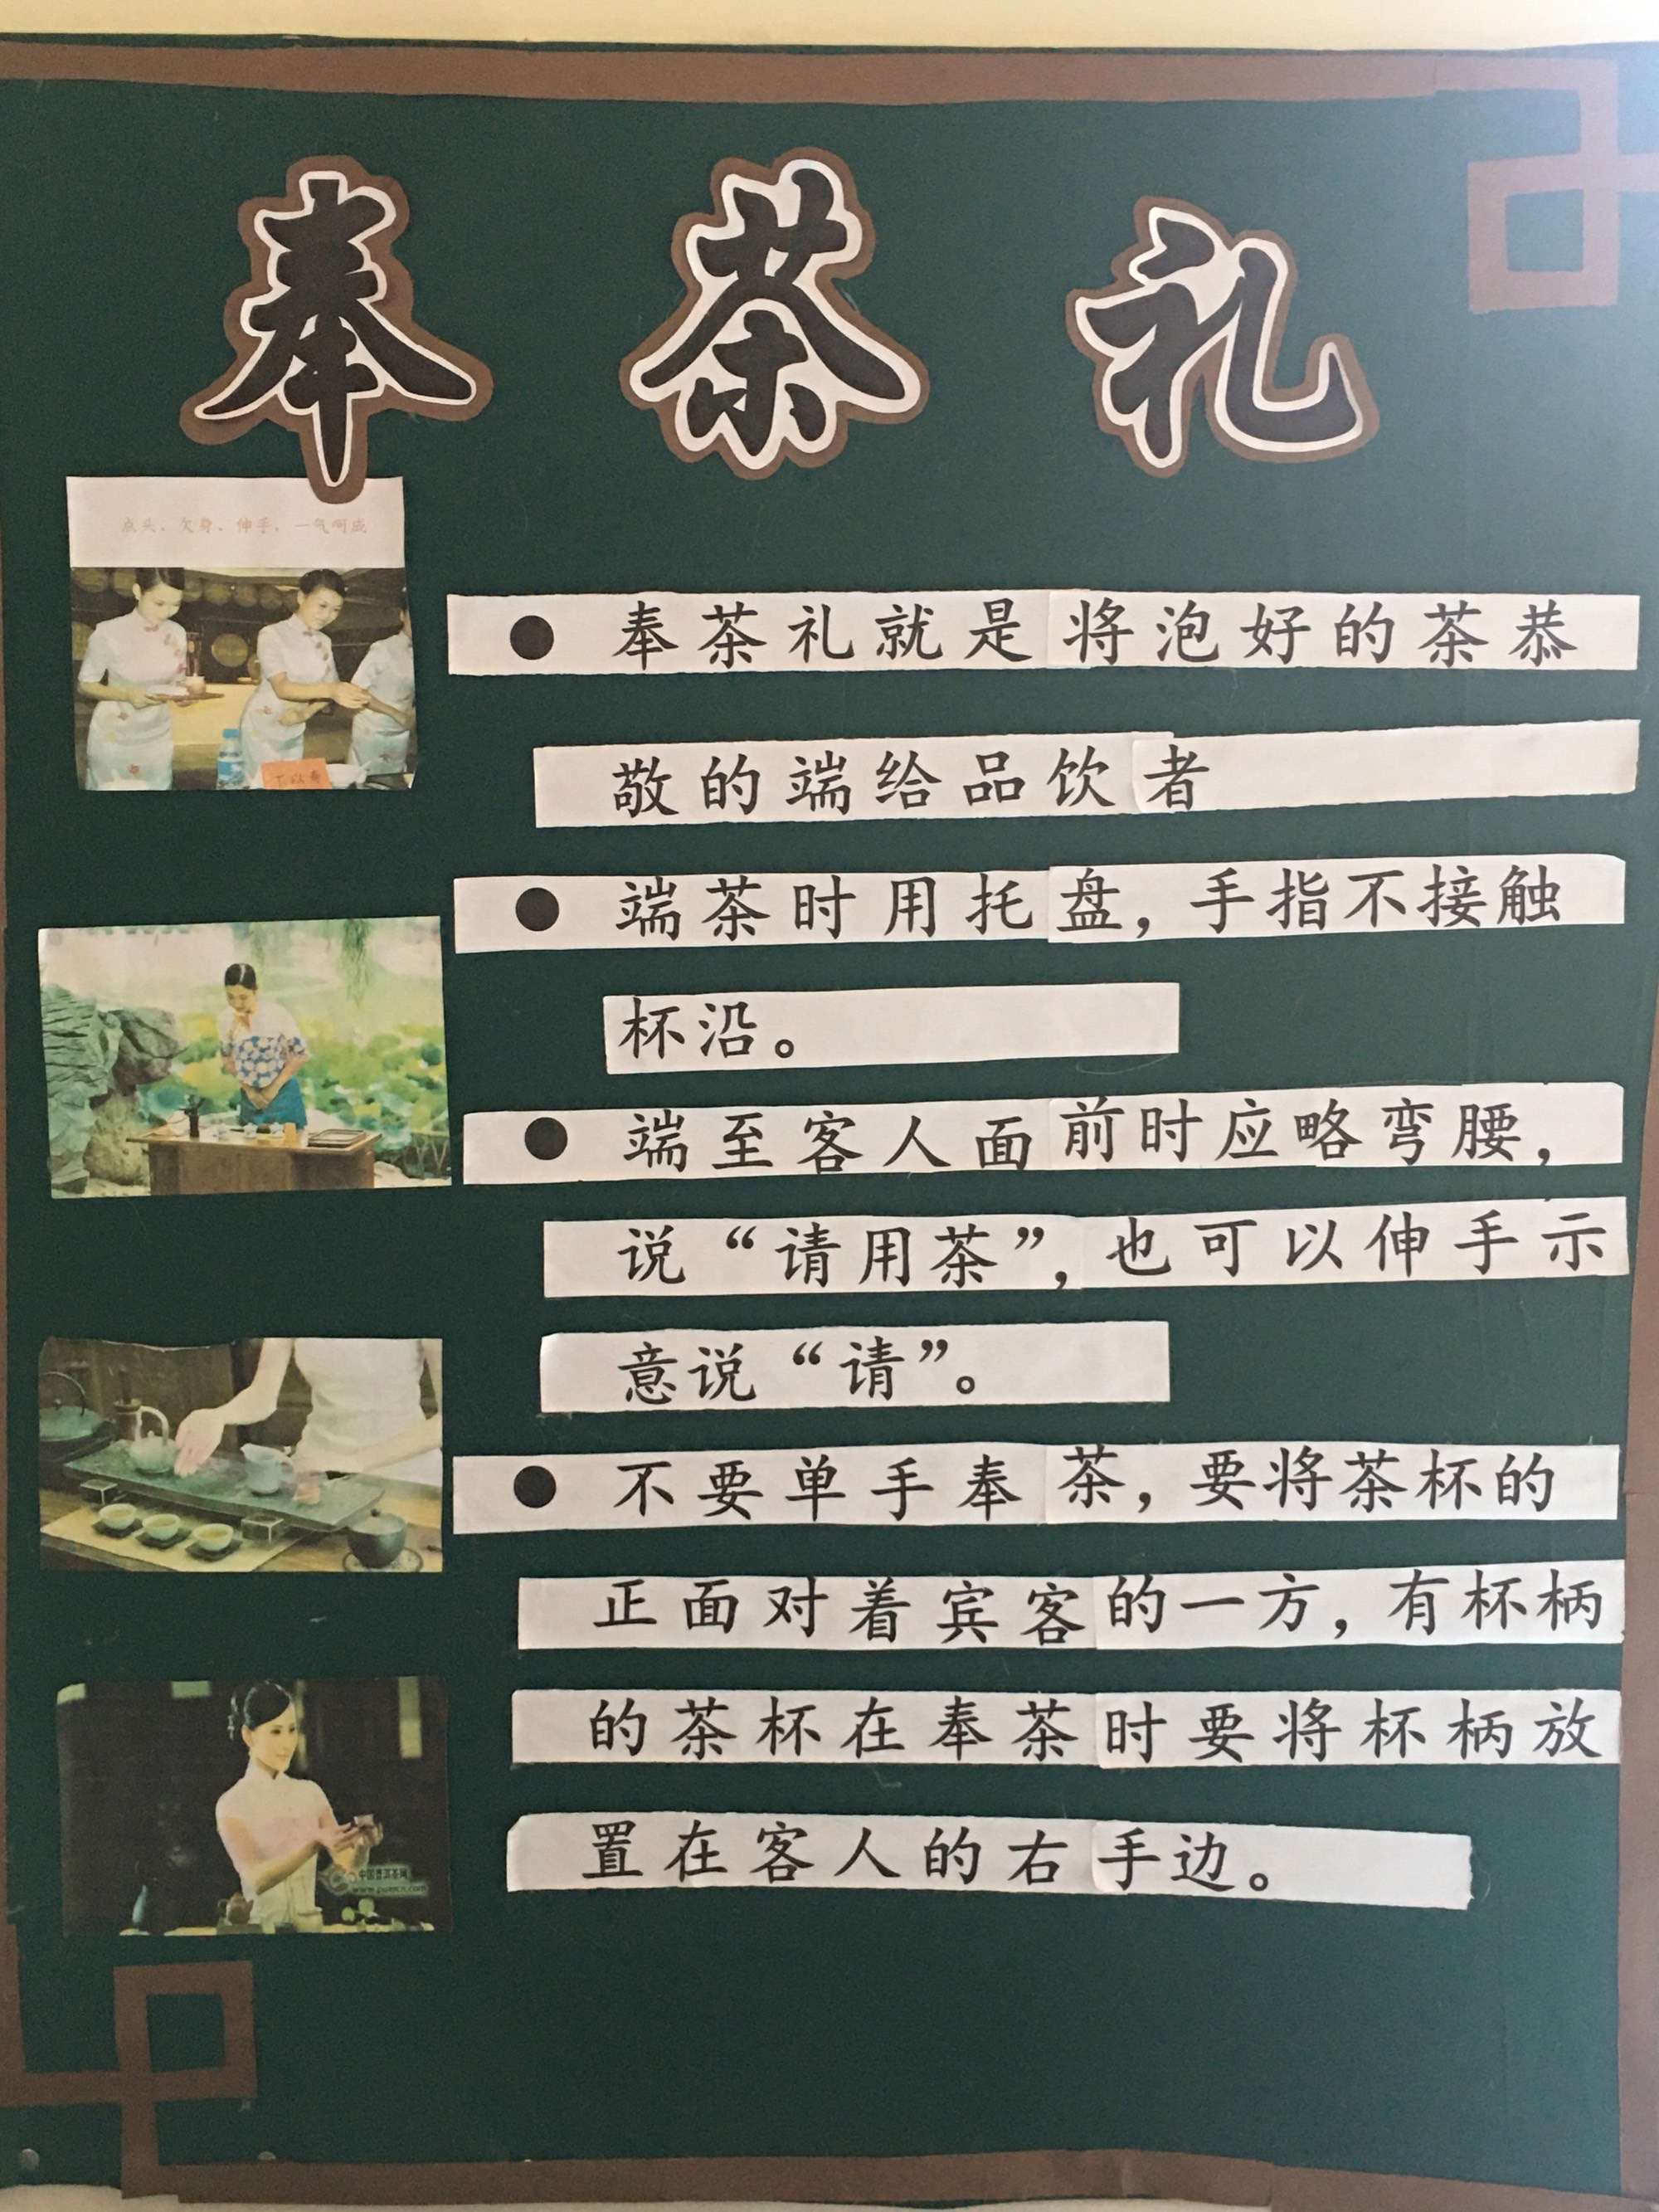 奉茶礼
点头、欠身、伸手，一气呵成
● 奉茶礼就是将泡好的茶恭
敬的端给品饮者
● 端茶时用托盘，手指不接触
杯沿。
● 端至客人面前时应略弯腰，
说“请用茶”，也可以伸手示
意说“请”。
● 不要单手奉茶，要将茶杯的
正面对着宾客的一方，有杯柄
的茶杯在奉茶时要将杯柄放
置在客人的右手边。
中国普洱茶网